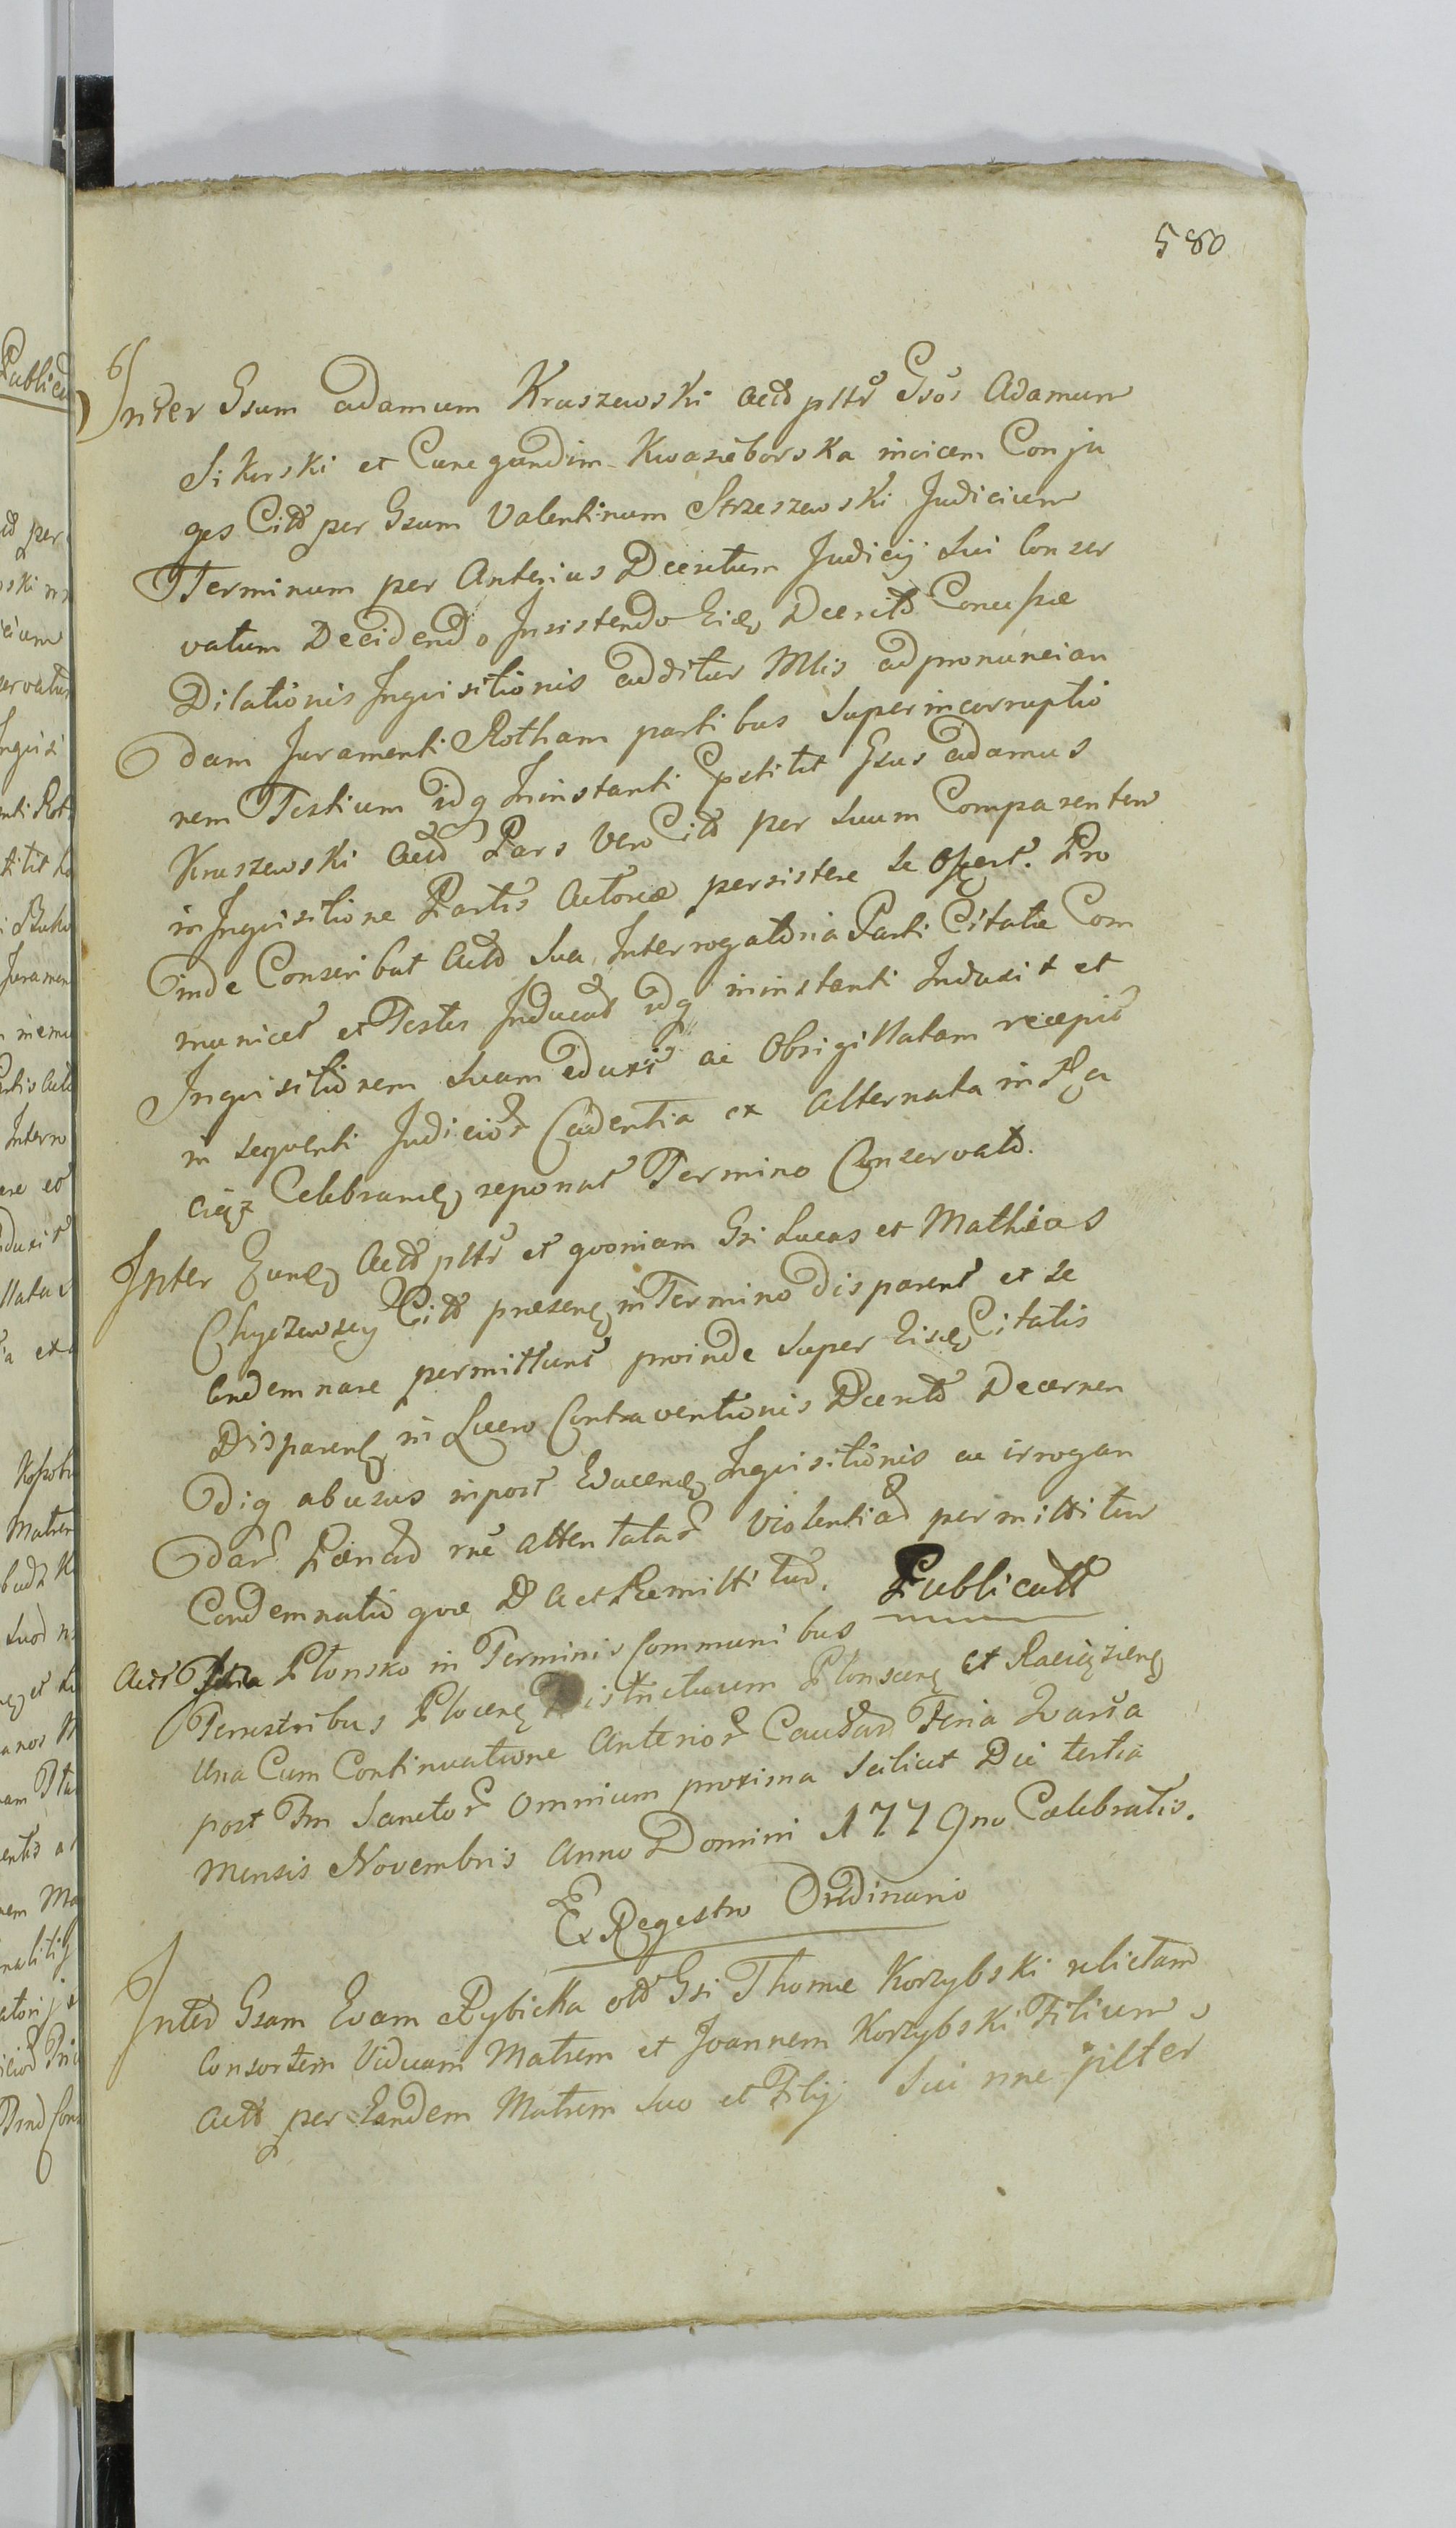 580
6
Inter Gsum Adamum Kraszewski Actt pltr Gsos Adamum
Sikorski et Cunegundim Kwasieborska invicem Conju
ges Citt per Gsum Valentinum Strzeszewski Judicium
Terminum per Anterius Decretum Judicij sui Conser
vatum Decidendo Insistendo Eidq Decreto Concessae
Dilationis Inquisitionis additur Mlis ad pronuncian
dam Juramenti Rotham partibus super incorruptio
nem Testium idq in instanti pstitit Gsus Adamus
Kraszewski Actt Pars vero Citt per suum Comparentem
in Inquisitione Partis Actoreae persistere se offert. Pro
inde Conscribat Actt sua Interrogatoria Parti Citatae Com
municet et Testes Inducat idq in instanti Induxit et
Inquisitionem suam eduxit ac Obsigillatam recepit
in sequenti Judicior Cadentia ex Alternata in
Celebrand reponat Termino Conservato.
Inter Eund Actt pltr et quoniam Gsi Lucas et Mathias
Chyczewscy Citt praesend in Termino disparent et se
Condemnare permittunt proinde super Eisd Citatis
Disparend in Lucro Contraventionis Decreto Decernen
diq abusus in post Educend Inquisitionis ac irrogan
dar Paenar rne attentatar violentiar permittitur
Condemnatio quae D Act Remittitur. Publicatt
Actt Plonsko in Terminis Communibus
Terrestribus Plocend Districtuum Plonscend et Raciąziend
Una Cum Continuatione Anterior Causar Feria Quarta
post Fm Sanctor Omnium proxima scilicet Die tertia
Mensis Novembris Anno Domini 1779no Caelebratis.
Ex Regestro Ordinario
Inter Gsam Evam Rybicka olt Gsi Thomae Korzybski relictam
Consortem Viduam Matrem et Joannem Korzybski Filium
Actt per Eandem Matrem suo et Filij sui nne pilter